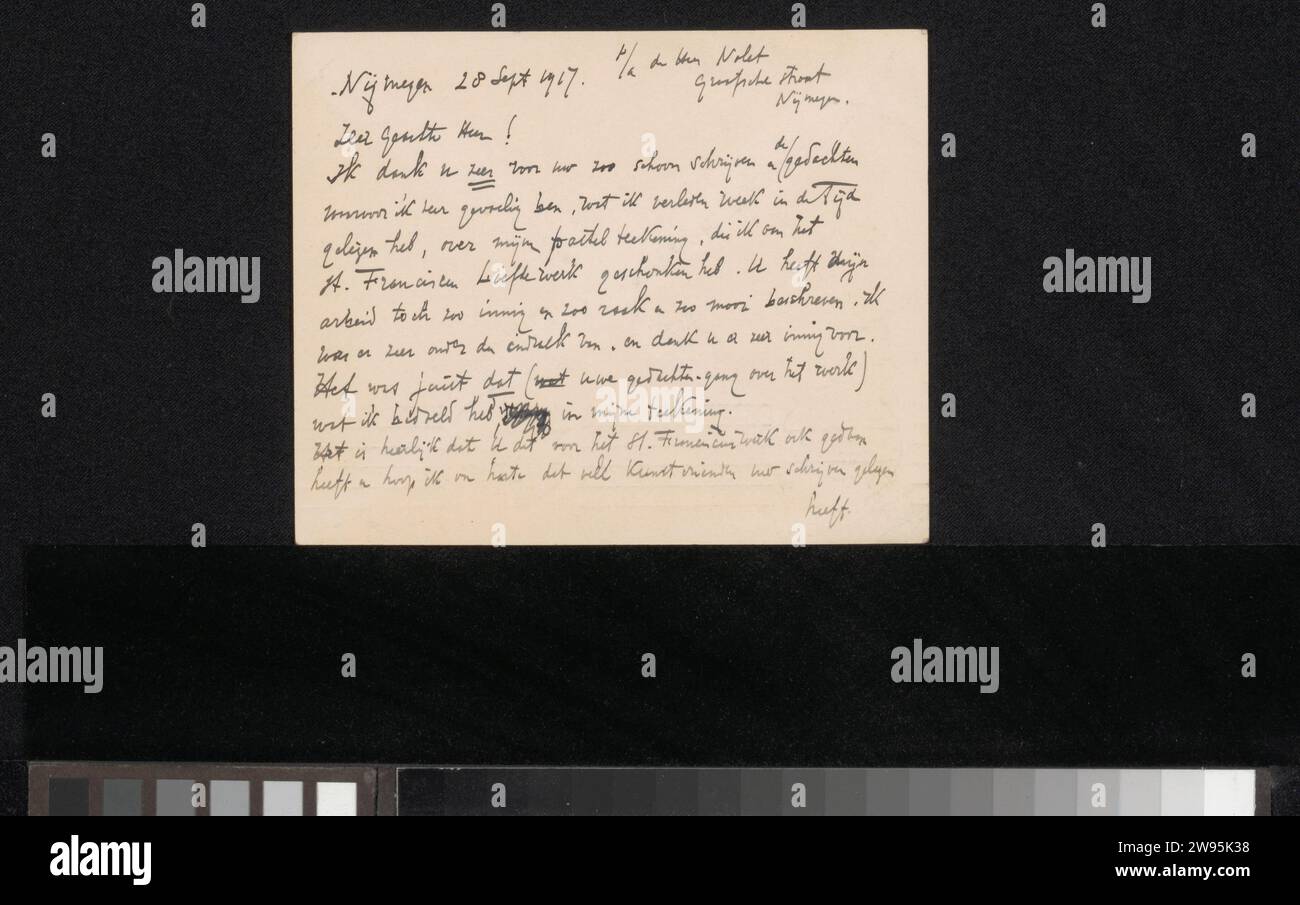 Nijmegen 28 Sept 1917.
p/a de Heer Nolet
Graafsche straat
Nijmegen.
Zeer Geachte Heer!
Ik dank u zeer voor uw zoo schoon schrijven en de gedachten
waarvoor ik zeer gevoelig ben, wat ik verleden week in de Tijd
gelezen heb, over mijn pastel teekening, die ik aan het
St. Franciscus Liefdewerk geschonken heb. U heeft mijn
arbeid toch zoo innig en zoo raak en zoo mooi beschreven. Ik
was er zeer onder den indruk van. en dank u er zeer innig voor.
Het was juist dat (uwe gedachten-gang over het werk)
wat ik bedoeld heb in mijn teekening.
Het is heerlijk dat U dit voor het St. Franciscuswerk ook gedaan
heeft en hoop ik van harte dat veel Kunstvrienden uw schrijven gelezen
heeft.
alamy
alamy
Image ID: 2W95K38
www.alamy.com